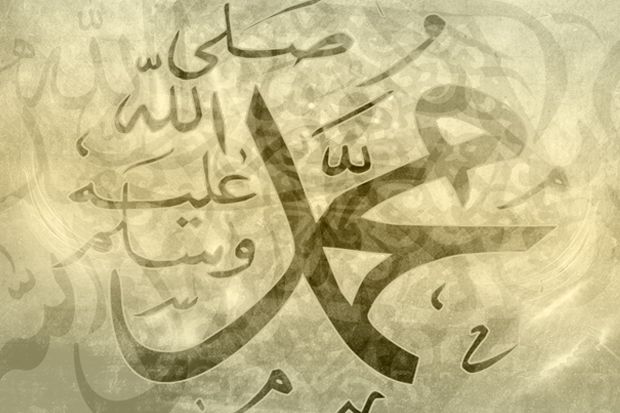 محمّد
صلى
الله
عليه
وسلم